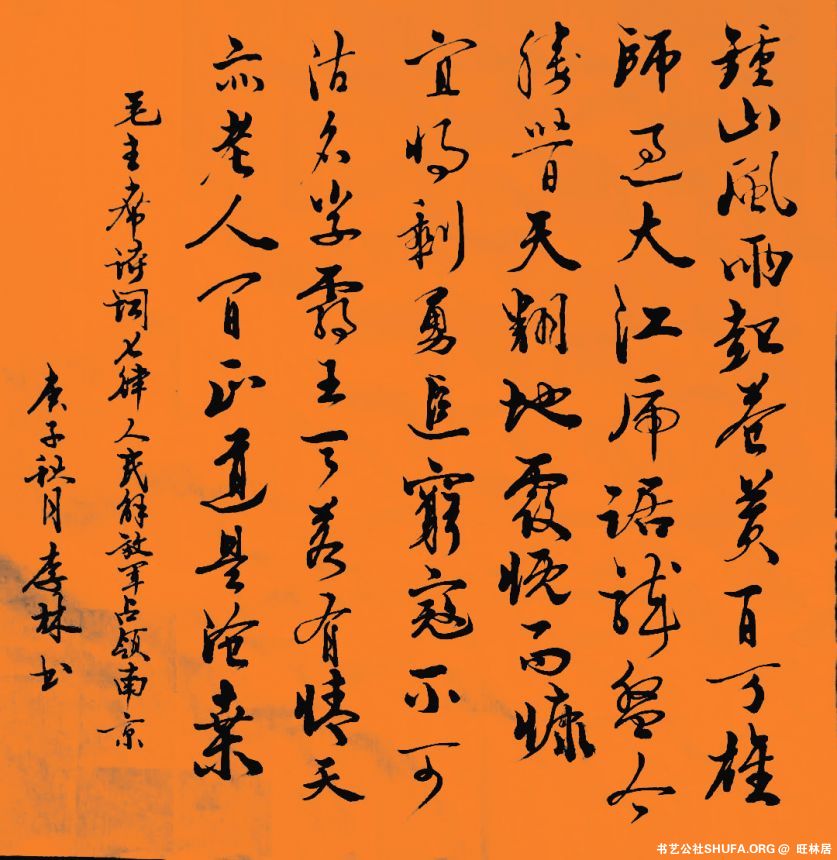 鍾山風雨起蒼黃百万雄
師過大江虎踞龍盤今
勝昔天翻地覆慨而慷
宜将剩勇追窮寇不可
沽名学霸王天若有情天
亦老人間正道是滄桑
毛主席诗词七律人民解放军占领南京
庚子秋月李林书
书艺公社SHUFA.ORG @ 旺林居